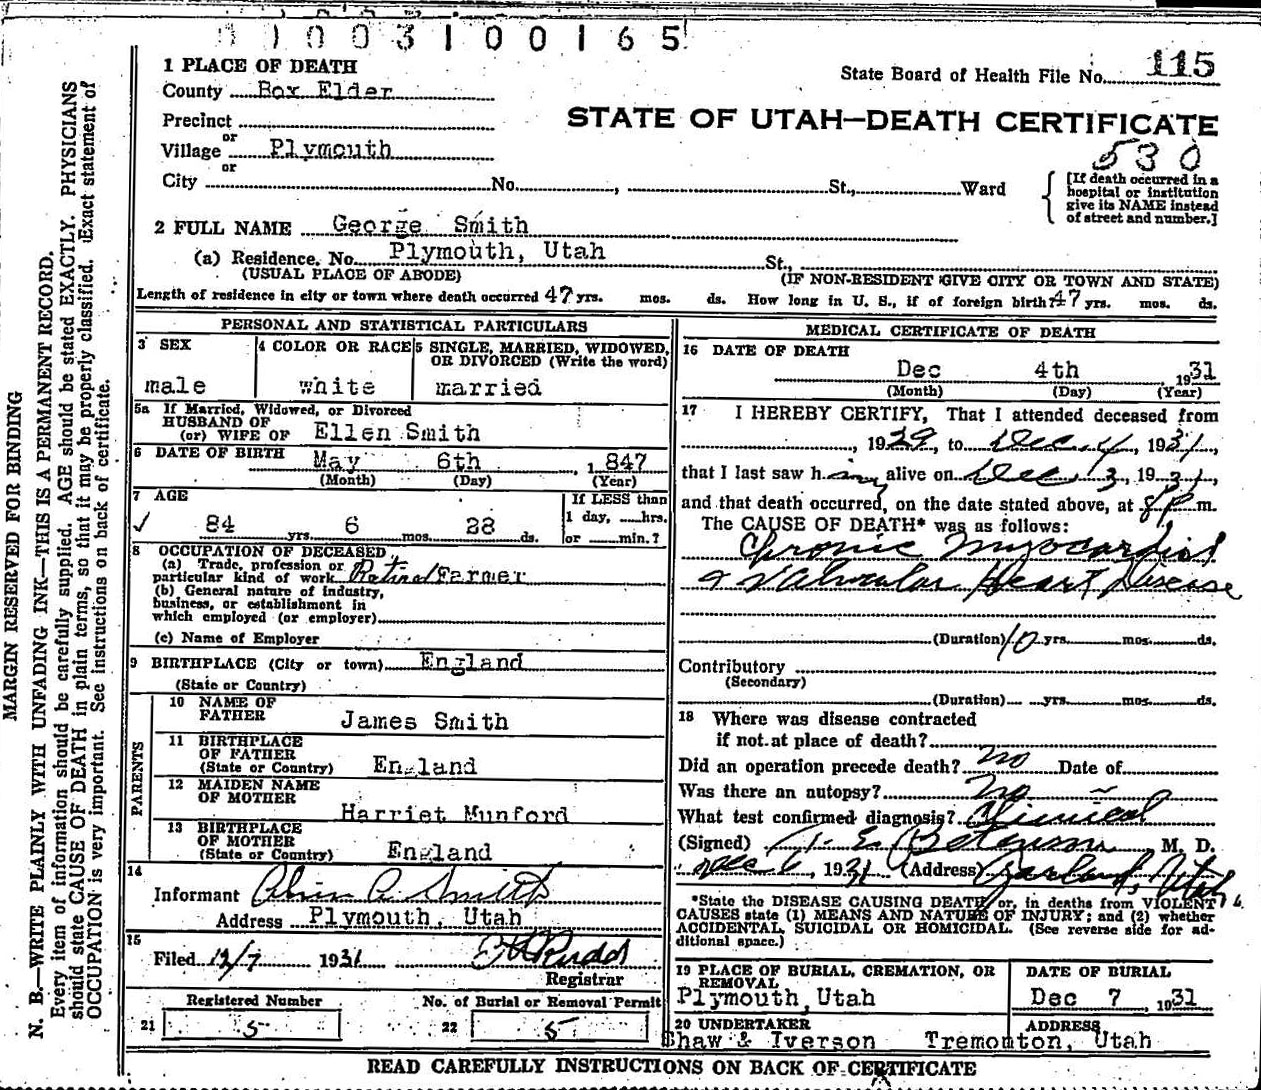 01003100165
1 PLACE OF DEATH
State Board of Health File No. 115
County Box Elder
STATE OF UTAH—DEATH CERTIFICATE
Precinct
or
Village Plymouth
530
or
City No. , St., Ward
[If death occurred in a hospital or institution give its NAME instead of street and number.]
2 FULL NAME George Smith
(a) Residence. No. Plymouth, Utah St.,
(USUAL PLACE OF ABODE) (IF NON-RESIDENT GIVE CITY OR TOWN AND STATE)
Length of residence in city or town where death occurred 47 yrs. mos. ds. How long in U. S., if of foreign birth? 47 yrs. mos. ds.
PERSONAL AND STATISTICAL PARTICULARS
3 SEX
male
4 COLOR OR RACE
white
5 SINGLE, MARRIED, WIDOWED,
OR DIVORCED (Write the word)
married
5a If Married, Widowed, or Divorced
HUSBAND OF
(or) WIFE OF Ellen Smith
6 DATE OF BIRTH May 6th , 1847
(Month) (Day) (Year)
7 AGE
If LESS than
1 day, ....hrs.
or ....min.?
84 yrs. 6 mos. 28 ds.
8 OCCUPATION OF DECEASED
(a) Trade, profession or
particular kind of work Retired Farmer
(b) General nature of industry,
business, or establishment in
which employed (or employer)
(c) Name of Employer
9 BIRTHPLACE (City or town) England
(State or Country)
PARENTS
10 NAME OF
FATHER James Smith
11 BIRTHPLACE
OF FATHER
(State or Country) England
12 MAIDEN NAME
OF MOTHER
Harriet Munford
13 BIRTHPLACE
OF MOTHER
(State or Country) England
14
Informant Smith
Address Plymouth, Utah
15
Filed 12/7 1931
Registrar
Registered Number
21 5
No. of Burial or Removal Permit
22 5
MEDICAL CERTIFICATE OF DEATH
16 DATE OF DEATH
Dec 4th 1931
(Month) (Day) (Year)
17 I HEREBY CERTIFY, That I attended deceased from
, 1929, to Dec 4, 1931,
that I last saw him alive on Dec 3, 1931,
and that death occurred, on the date stated above, at 8 p m.
The CAUSE OF DEATH* was as follows:
Chronic Myocardial
& Valvular Heart Disease
(Duration) 10 yrs. mos. ds.
Contributory
(Secondary)
(Duration) yrs. mos. ds.
18 Where was disease contracted
if not at place of death?
Did an operation precede death? no Date of
Was there an autopsy? no
What test confirmed diagnosis? Clinical
(Signed) M. D.
Dec 6, 1931 (Address) Garland, Utah
*State the DISEASE CAUSING DEATH, or, in deaths from VIOLENT
CAUSES state (1) MEANS AND NATURE OF INJURY; and (2) whether
ACCIDENTAL, SUICIDAL OR HOMICIDAL. (See reverse side for ad-
ditional space.)
19 PLACE OF BURIAL, CREMATION, OR
REMOVAL
Plymouth, Utah
DATE OF BURIAL
Dec 7, 1931
20 UNDERTAKER
Shaw & Iverson
ADDRESS
Tremonton, Utah
READ CAREFULLY INSTRUCTIONS ON BACK OF CERTIFICATE
MARGIN RESERVED FOR BINDING
N. B.—WRITE PLAINLY WITH UNFADING INK—THIS IS A PERMANENT RECORD.
Every item of information should be carefully supplied. AGE should be stated EXACTLY. PHYSICIANS
should state CAUSE OF DEATH in plain terms, so that it may be properly classified. Exact statement of
OCCUPATION is very important. See instructions on back of certificate.